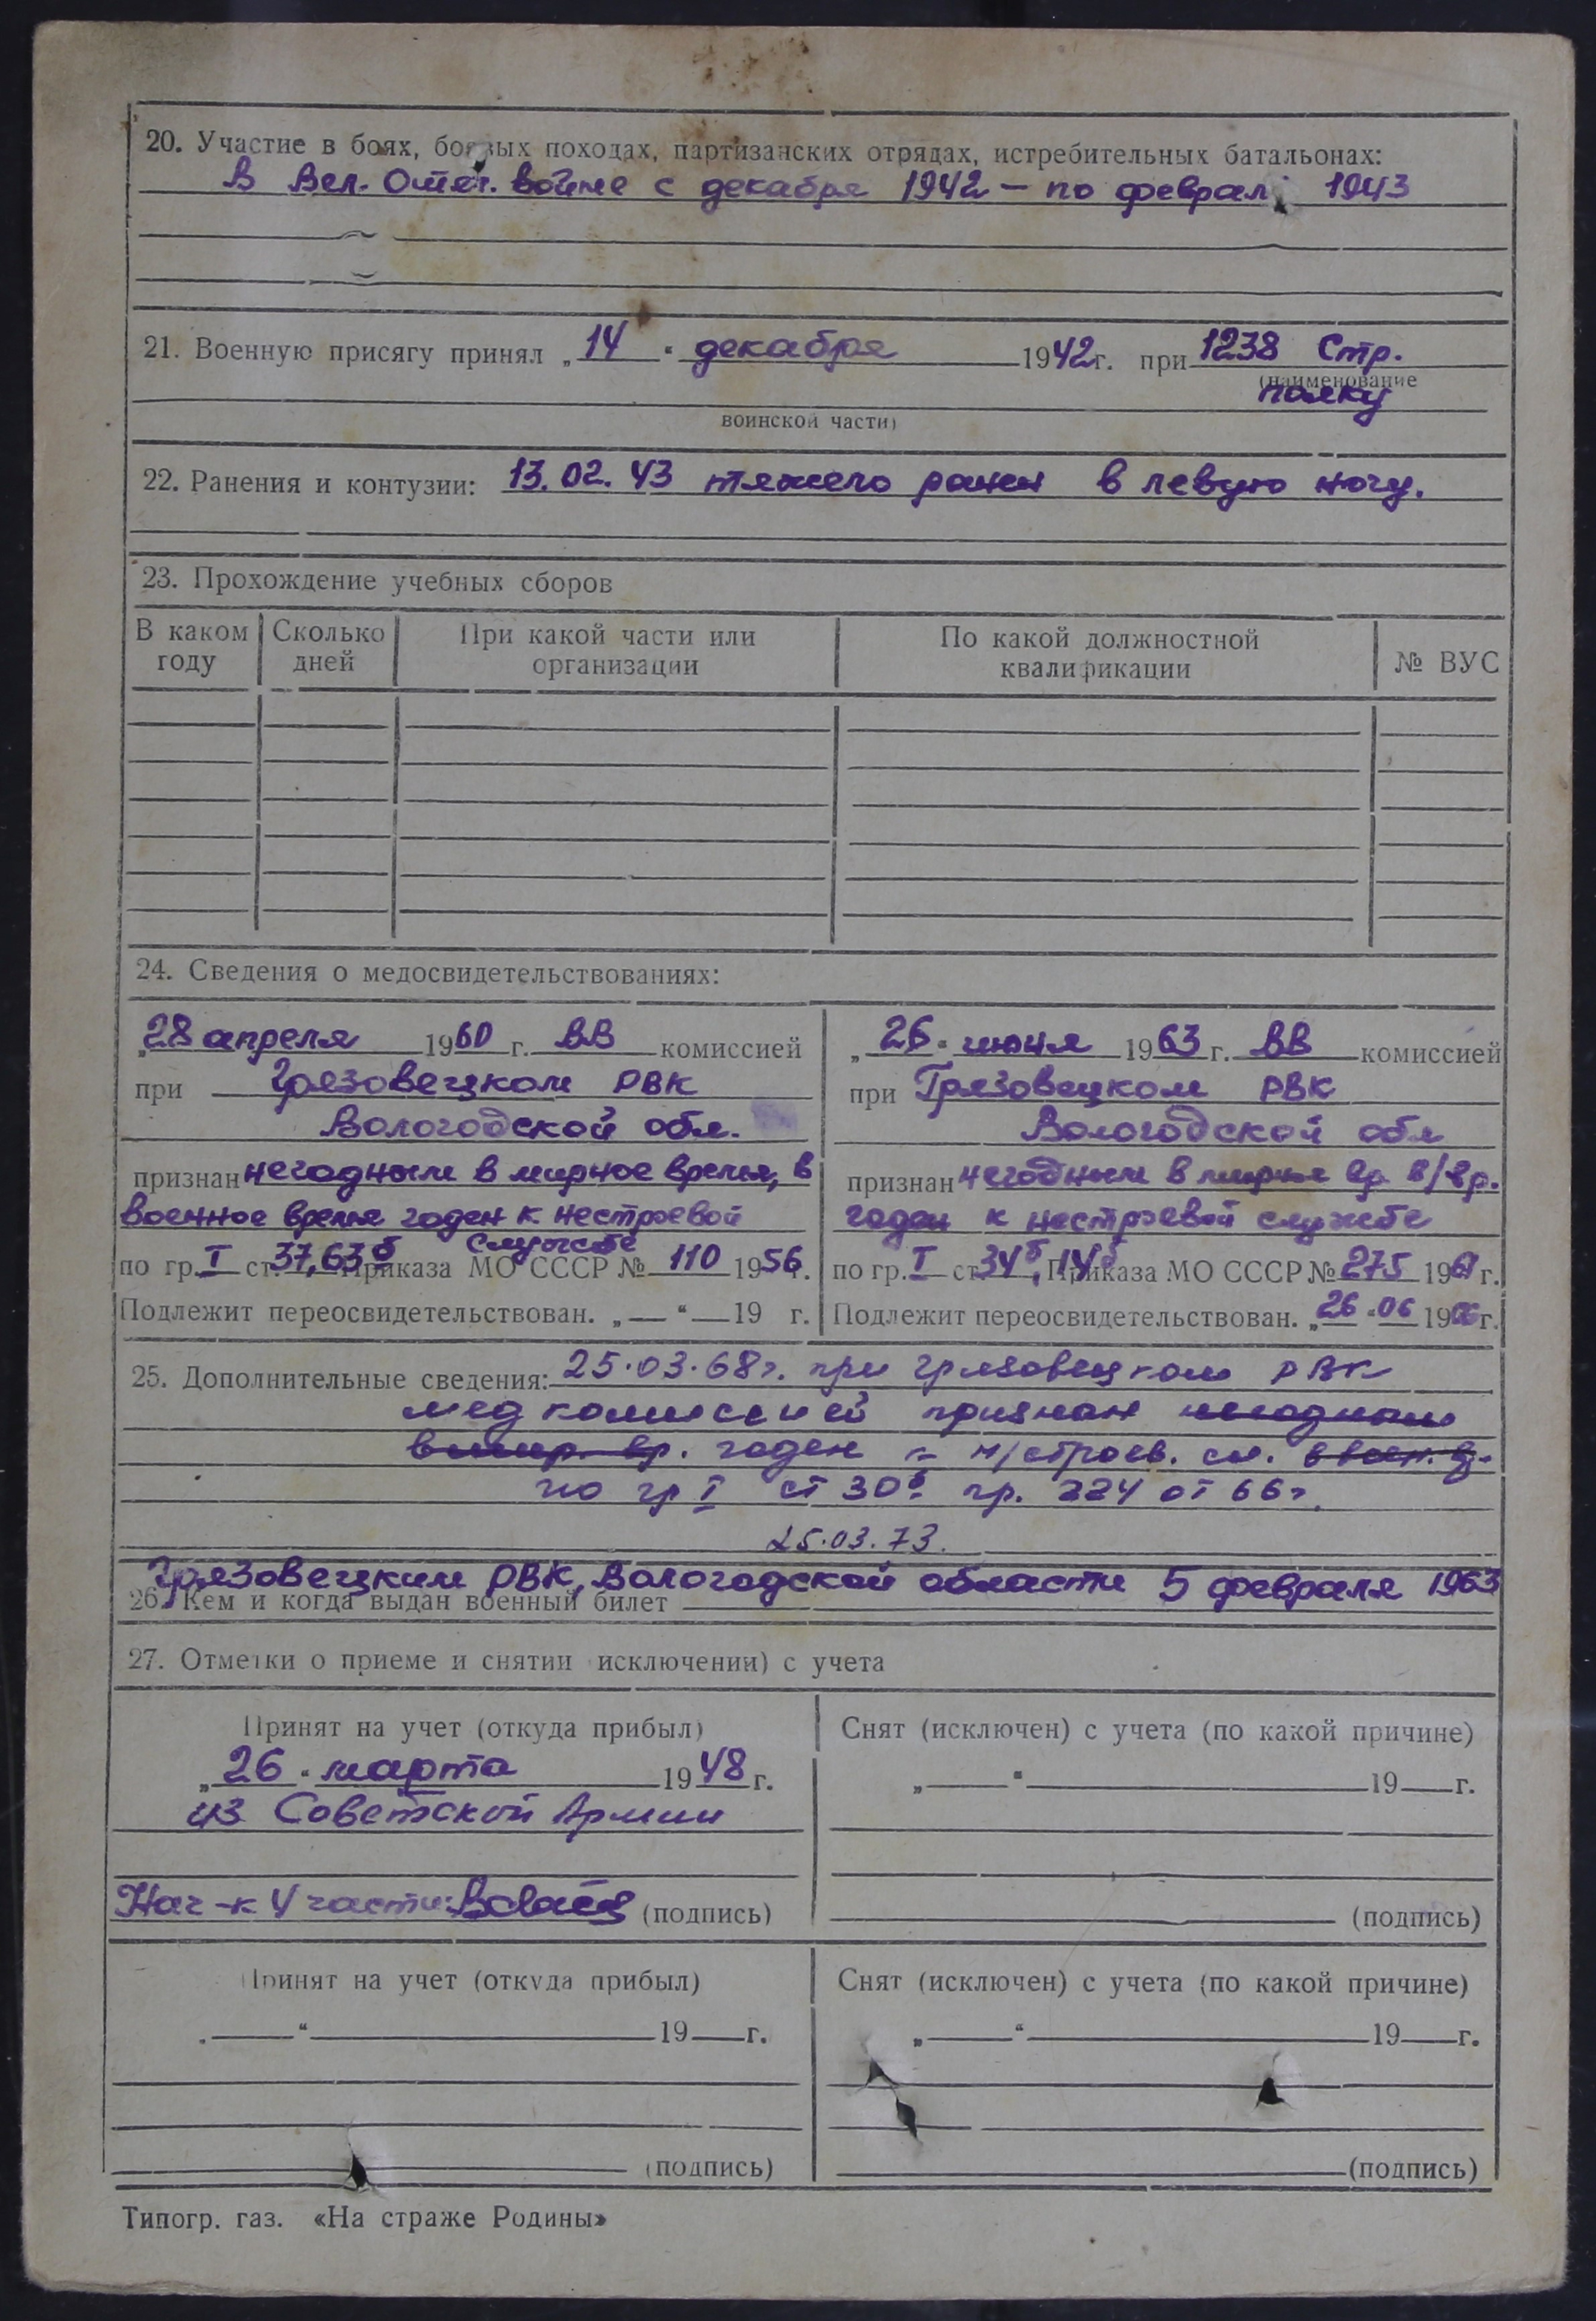 20. Участие в боях, боевых походах, партизанских отрядах, истребительных батальонах:
В Вел. Отеч. войне с декабря 1942 – по феврал 1943
21. Военную присягу принял „14" декабря 1942 г. при 1238 Стр.
(наименование
полку
воинской части)
22. Ранения и контузии: 13.02.43 тяжело ранен в левую ногу.
23. Прохождение учебных сборов
В каком году
Сколько дней
При какой части или организации
По какой должностной квалификации
№ ВУС
24. Сведения о медосвидетельствованиях:
„28 апреля 1960 г. ВВ комиссией
при Грязовецком РВК
Вологодской обл.
признан негодным в мирное время, в
военное время годен к нестроевой
службе
по гр. I ст. 37, 63б Приказа МО СССР № 110 1956 г.
Подлежит переосвидетельствован. „—" — 19 г.
„26" июня 1963 г. ВВ комиссией
при Грязовецком РВК
Вологодской обл
признан негодным в мирное вр. в/вр.
годен к нестроевой службе
по гр. I ст 34б, 14б Приказа МО СССР № 275 1961 г.
Подлежит переосвидетельствован. „26" 06 1966 г.
25. Дополнительные сведения: 25.03.68 г. при Грязовецком РВК
мед комиссией признан негодным
в мир. вр. годен к н/строев. сл. в воен. вр.
по гр I ст 30б пр. 224 от 66 г.
25.03.73.
Грязовецким РВК, Вологодской области 5 февраля 1963
26. Кем и когда выдан военный билет
27. Отметки о приеме и снятии исключении) с учета
Принят на учет (откуда прибыл)
„26" марта 1948 г.
из Советской Армии
Нач-к 4 части: (подпись)
Снят (исключен) с учета (по какой причине)
„—" — 19 — г.
(подпись)
Принят на учет (откуда прибыл)
„—" — 19 — г.
(подпись)
Снят (исключен) с учета (по какой причине)
„—" — 19 — г.
(подпись)
Типогр. газ. «На страже Родины»